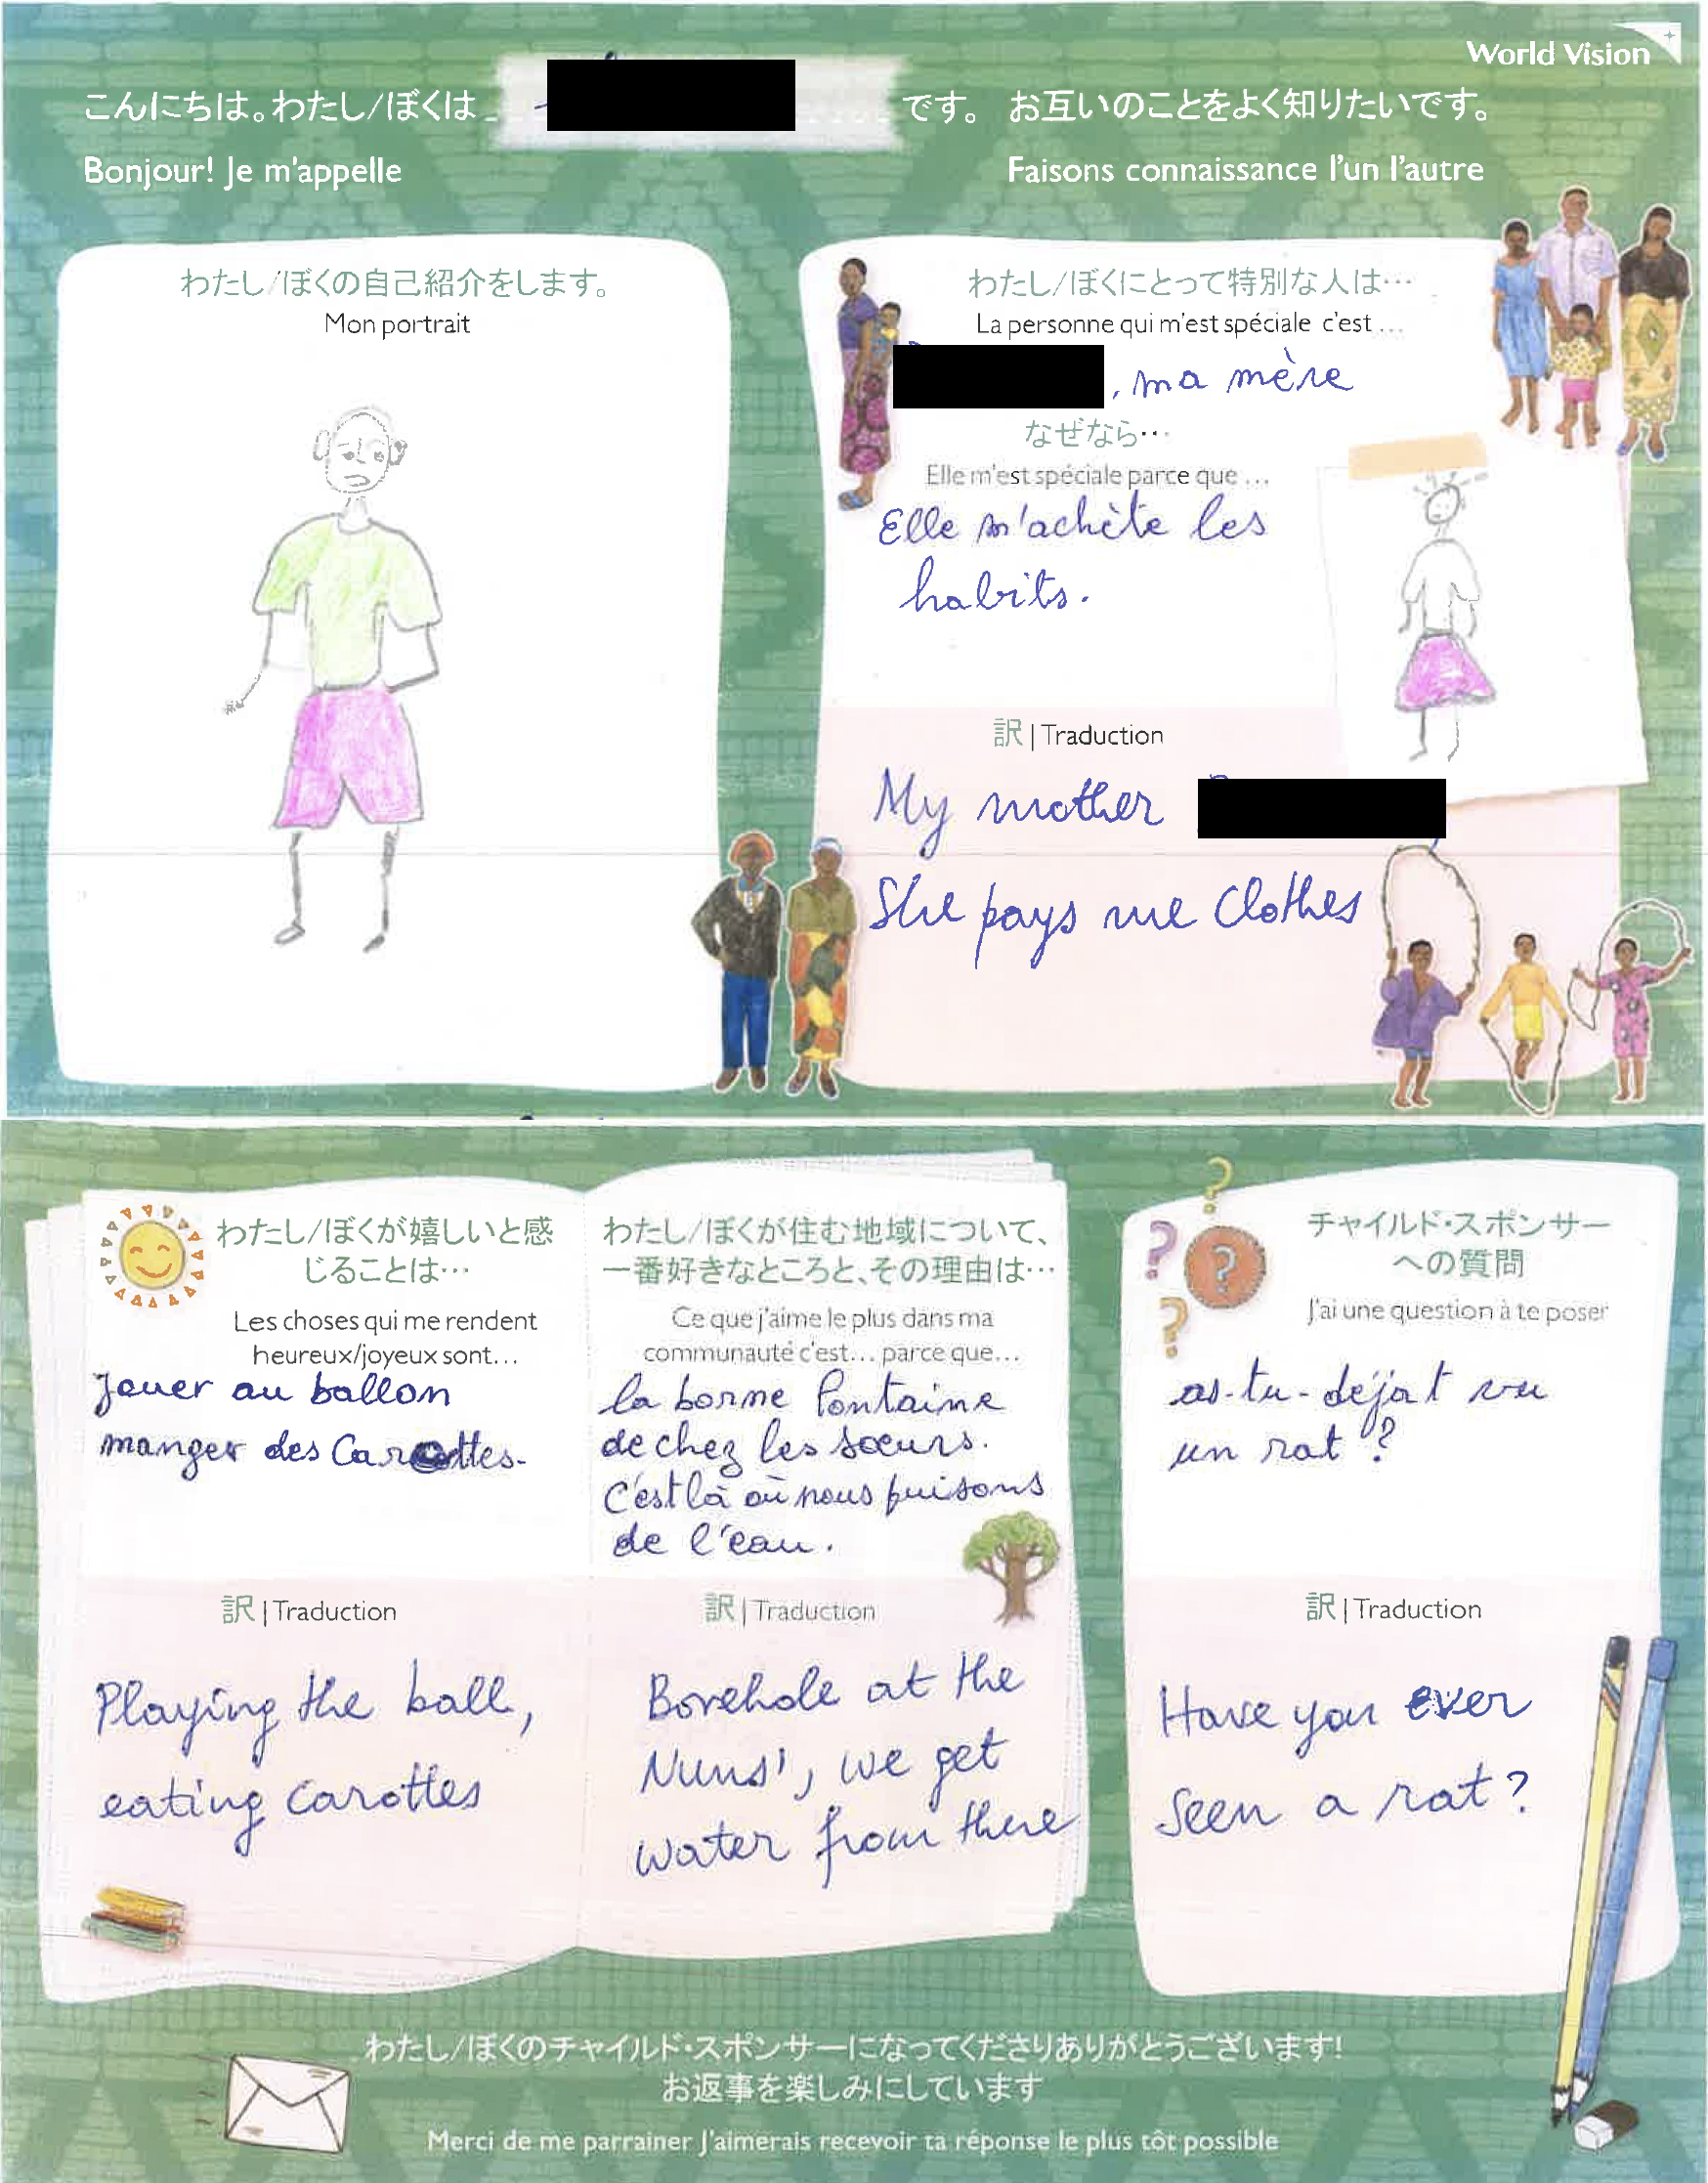 World Vision
こんにちは。わたし/ぼくは
です。 お互いのことをよく知りたいです。
Bonjour! Je m'appelle
Faisons connaissance l'un l'autre
わたし/ぼくの自己紹介をします。
Mon portrait
わたし/ぼくにとって特別な人は…
La personne qui m'est spéciale c'est ...
, ma mère
なぜなら…
Elle m'est spéciale parce que ...
Elle m'achète les
habits.
訳 | Traduction
My mother
She pays me Clothes
わたし/ぼくが嬉しいと感
じることは…
Les choses qui me rendent
heureux/joyeux sont...
Jouer au ballon
manger des Carottes.
訳 | Traduction
Playing the ball,
eating Carottes
わたし/ぼくが住む地域について、
一番好きなところと、その理由は…
Ce que j'aime le plus dans ma
communauté c'est... parce que...
la borne fontaine
de chez les sœurs.
C'est là où nous puisons
de l'eau.
訳 | Traduction
Borehole at the
Nuns', we get
water from there
チャイルド・スポンサー
への質問
J'ai une question à te poser
as-tu-déjat vu
un rat ?
訳 | Traduction
Have you ever
Seen a rat?
わたし/ぼくのチャイルド・スポンサーになってくださりありがとうございます!
お返事を楽しみにしています
Merci de me parrainer J'aimerais recevoir ta réponse le plus tôt possible